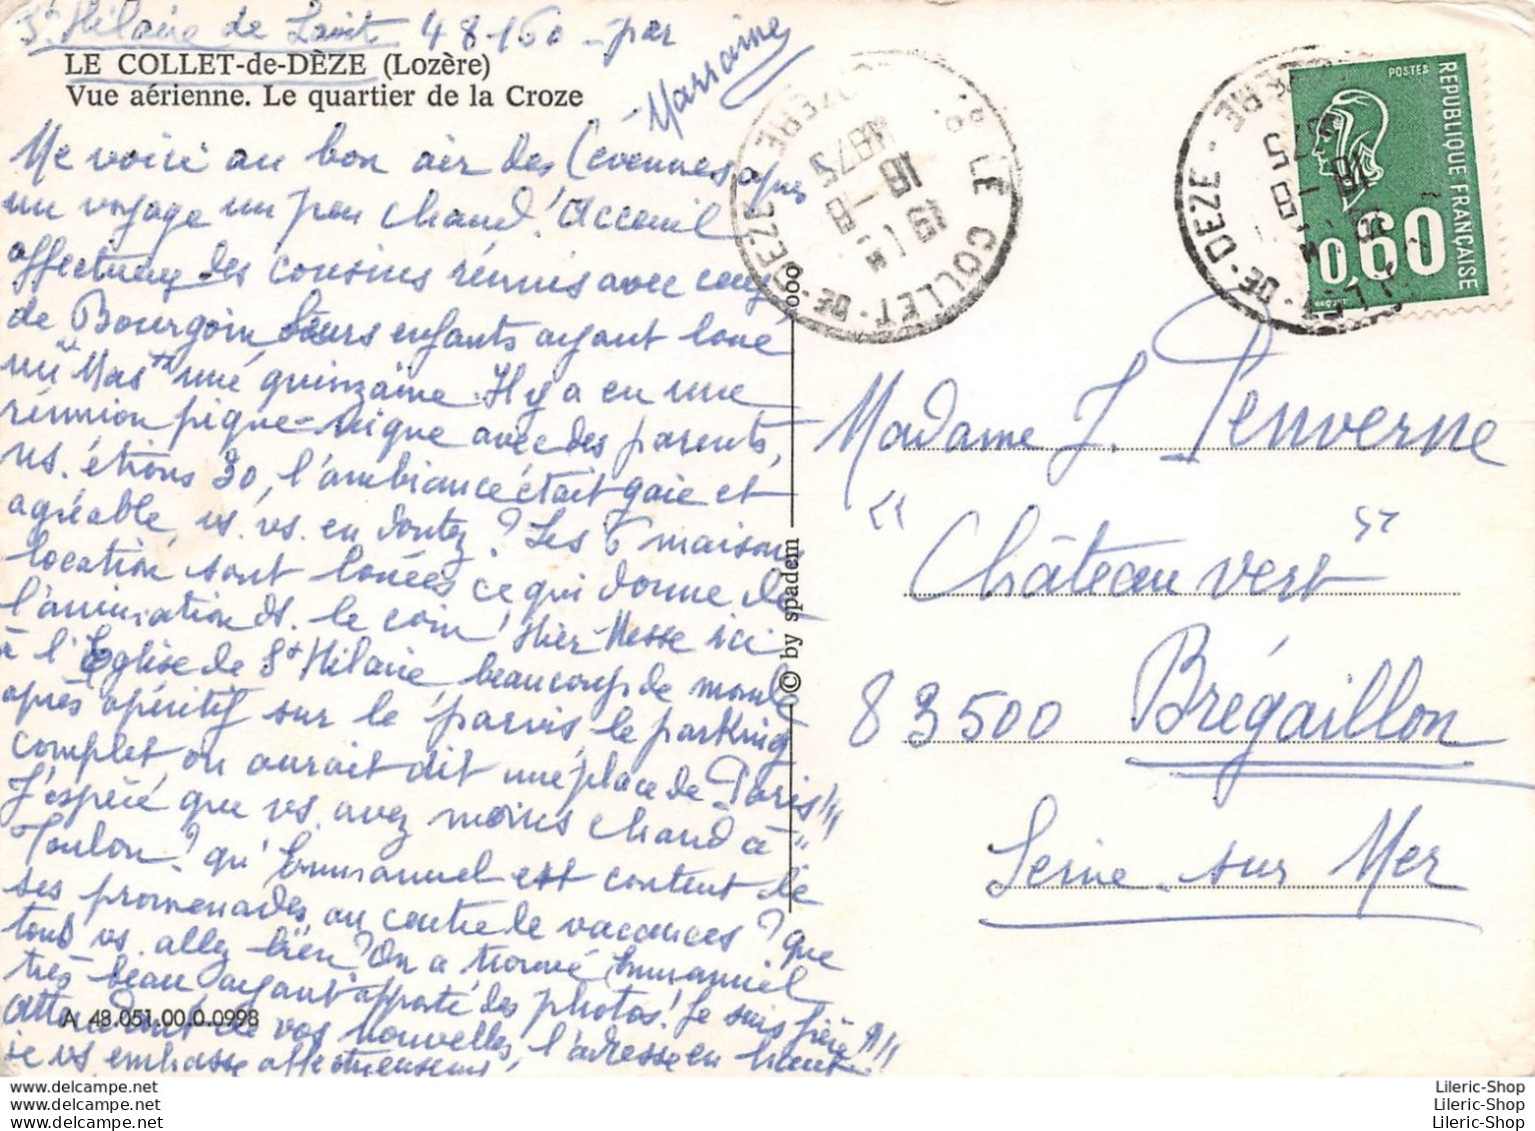 St Hilaire de Lavit 48-160 - par
LE COLLET-de-DÈZE (Lozère)
Vue aérienne. Le quartier de la Croze
Marraine
Me voici au bon air des Cévennes après
un voyage un peu chaud! Accueil
affectueux des cousins réunis avec ceux
de Bourgoin leurs enfants ayant loué
un "Mas" une quinzaine. Il y a eu une
réunion pique-nique avec des parents,
ns. étions 30, l'ambiance était gaie et
agréable, vs. vs. en doutez? Les 6 maisons
location sont louées ce qui donne de
l'animation ds. le coin! Hier Messe ici
à l'Eglise de St Hilaire, beaucoup de monde
après apéritif sur le parvis le parking
complet on aurait dit une place de Paris!!!
J'espère que vs. avez moins chaud à
Toulon? qu'Emmanuel est content de
ses promenades, au centre de vacances? que
tous vs. allez bien? On a trouvé Emmanuel
très beau ayant apporté des photos! Je suis fière!!!
Attendant de vos nouvelles, l'adresse en haut
je vs. embrasse affectueusement
A 48.051.00.0.0998
© by spadem
000
LE COLLET-DE-DEZE
LOZERE
19 H
18 - 8
1975
LE COLLET-DE-DEZE
18 - 8
1975
POSTES
REPUBLIQUE FRANÇAISE
0,60
Madame J. Penverne
"Château vert"
83500 Brégaillon
Seine sur Mer
Lileric-Shop
Lileric-Shop
Lileric-Shop